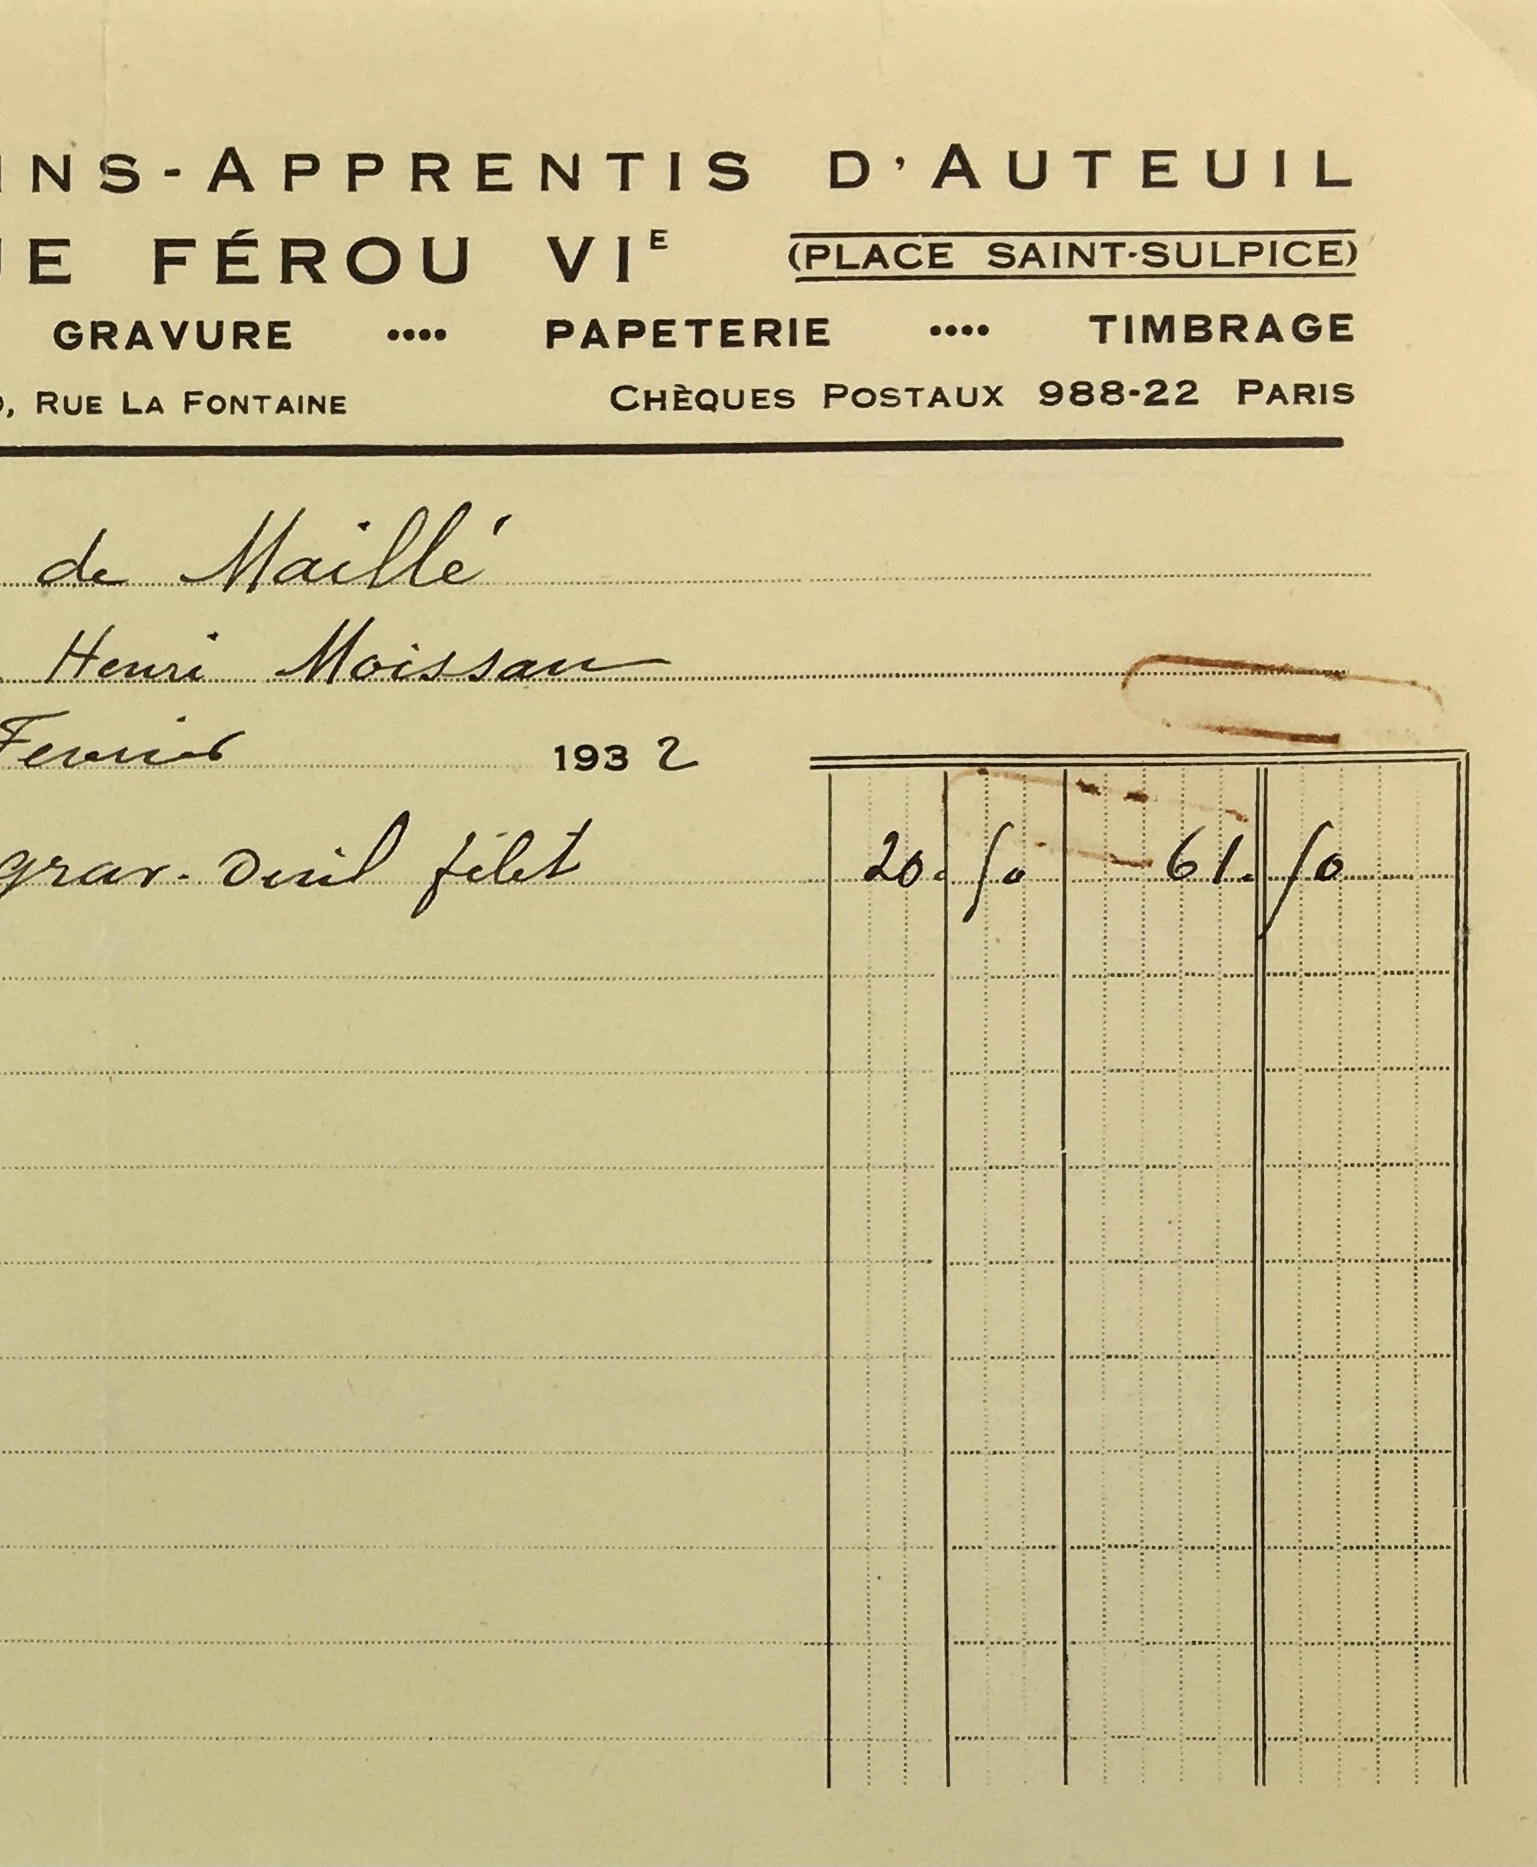 INS-APPRENTIS D'AUTEUIL
UE FÉROU VIE (PLACE SAINT-SULPICE)
GRAVURE •••• PAPETERIE •••• TIMBRAGE
, RUE LA FONTAINE CHÈQUES POSTAUX 988-22 PARIS
de Maillé
Henri Moissan
Fevrier 1932
grav. Deuil filet 20. 50 61. 50